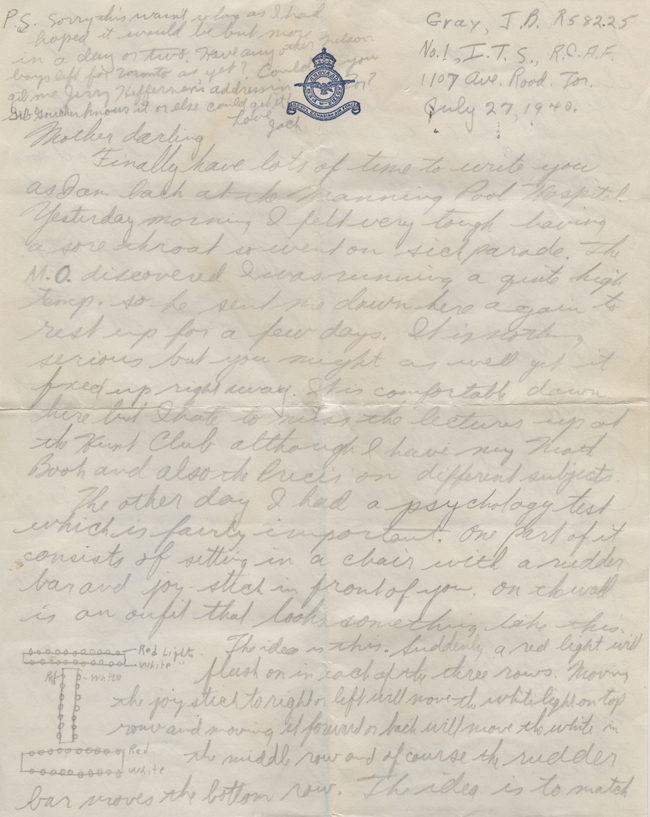 P.S. Sorry this wasn't so long as I had
hoped it would be but more
in a day or two. Have any other Nelson
boys left for Toronto as yet? Could you
get me Jerry Heffernan's address in Tor?
Gib Goucher knows it or else could get it
Love
Jack
Gray, J.B. R58225
No.1, I.T.S., R.C.A.F.
1107 Ave. Road. Tor.
July 27, 1940.
Mother darling
Finally have lots of time to write you
as I am back at the Manning Pool Hospital
Yesterday morning I felt very tough having
a sore throat so went on sick parade. The
M.O. discovered I was running a quite high
temp. so he sent me down here again to
rest up for a few days. It is nothing
serious but you might as well get it
fixed up right away. It is comfortable down
here but I hate to miss the lectures up at
the Hunt Club although I have my Math
Book and also the Precis on different subjects.
The other day I had a psychology test
which is fairly important. One part of it
consists of sitting in a chair with a rudder
bar and joy-stick in front of you. On the wall
is an oufit that looks something like this.
Red Light
White "
Red White
Red
White
The idea is this. Suddenly a red light will
flash on in each of the three rows. Moving
the joy stick to right or left will move the white light on top
row and moving it forward or back will move the white in
the middle row and of course the rudder
bar moves the bottom row. The idea is to match